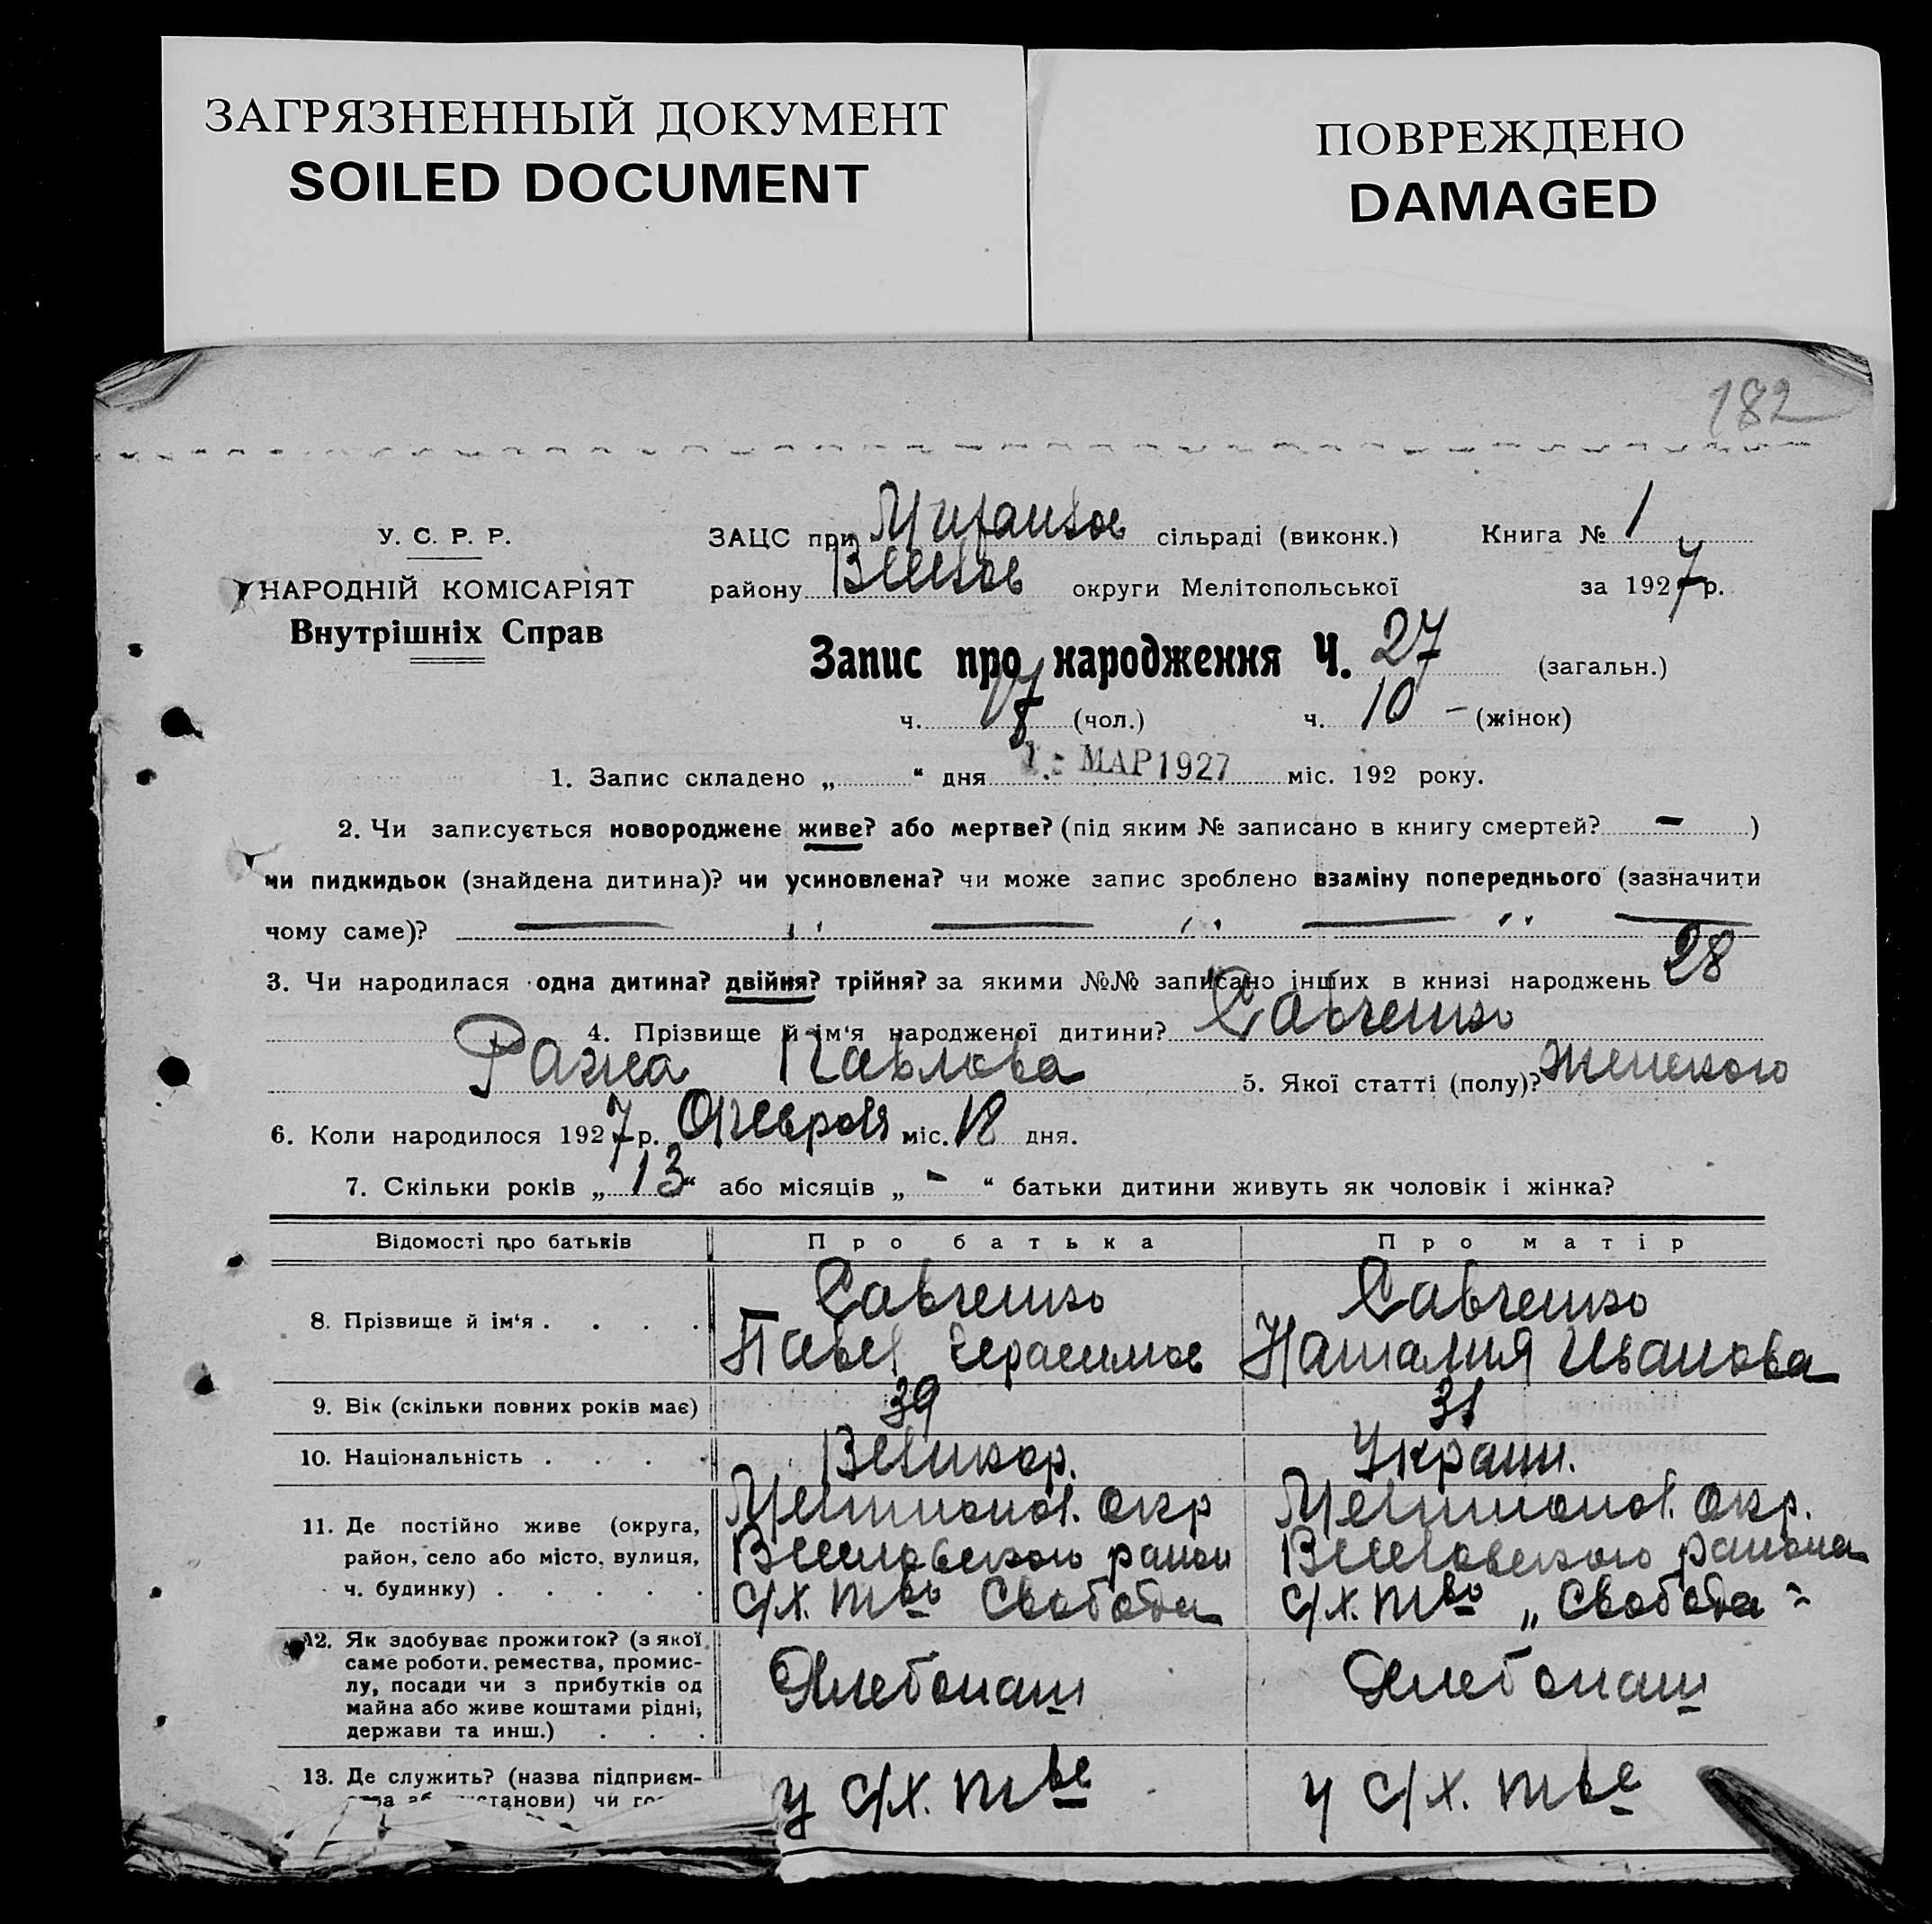 ЗАГРЯЗНЕННЫЙ ДОКУМЕНТ
SOILED DOCUMENT
ПОВРЕЖДЕНО
DAMAGED
182
У. С. Р. Р.
НАРОДНІЙ КОМІСАРІЯТ
Внутрішніх Справ
ЗАЦС при сільраді (виконк.) Книга № 1
району округи Мелітопольської за 1927 р.
Запис про народження Ч. 27 (загальн.)
ч. (чол.) ч. 10 - (жінок)
1. Запис складено „ “ дня 1 МАР 1927 міс. 192 року.
2. Чи записується новороджене живе? або мертве? (під яким № записано в книгу смертей? - )
чи пидкидьок (знайдена дитина)? чи усиновлена? чи може запис зроблено взаміну попереднього (зазначити
чому саме)? — „ — „ — „ —
3. Чи народилася одна дитина? двійня? трійня? за якими №№ записано інших в книзі народжень 28
4. Прізвище й ім‘я народженої дитини? Савченко
Павлова 5. Якої статті (полу)? Женского
6. Коли народилося 1927 р. Февраля міс. 18 дня.
7. Скільки років „ 13 “ або місяців „ - “ батьки дитини живуть як чоловік і жінка?
Відомості про батьків Про батька Про матір
8. Прізвище й ім‘я . . . . Савченко Савченко
Павел Герасимов Наталия Иванова
9. Вік (скільки повних років має) 39 31
10. Національність . . . . Великор. Украин.
11. Де постійно живе (округа, Мелитопол. Окр Мелитопол. Окр.
район, село або місто, вулиця, район района
ч. будинку) . . . . . С/х. тво Свобода С/х. тво „Свобода“
12. Як здобуває прожиток? (з якої
саме роботи, ремества, промис-
лу, посади чи з прибутків од Хлебопаш Хлебопаш
майна або живе коштами рідні,
держави та инш.) . . .
13. Де служить? (назва підприєм-
станови) чи го у с/х. тве у с/х. тве